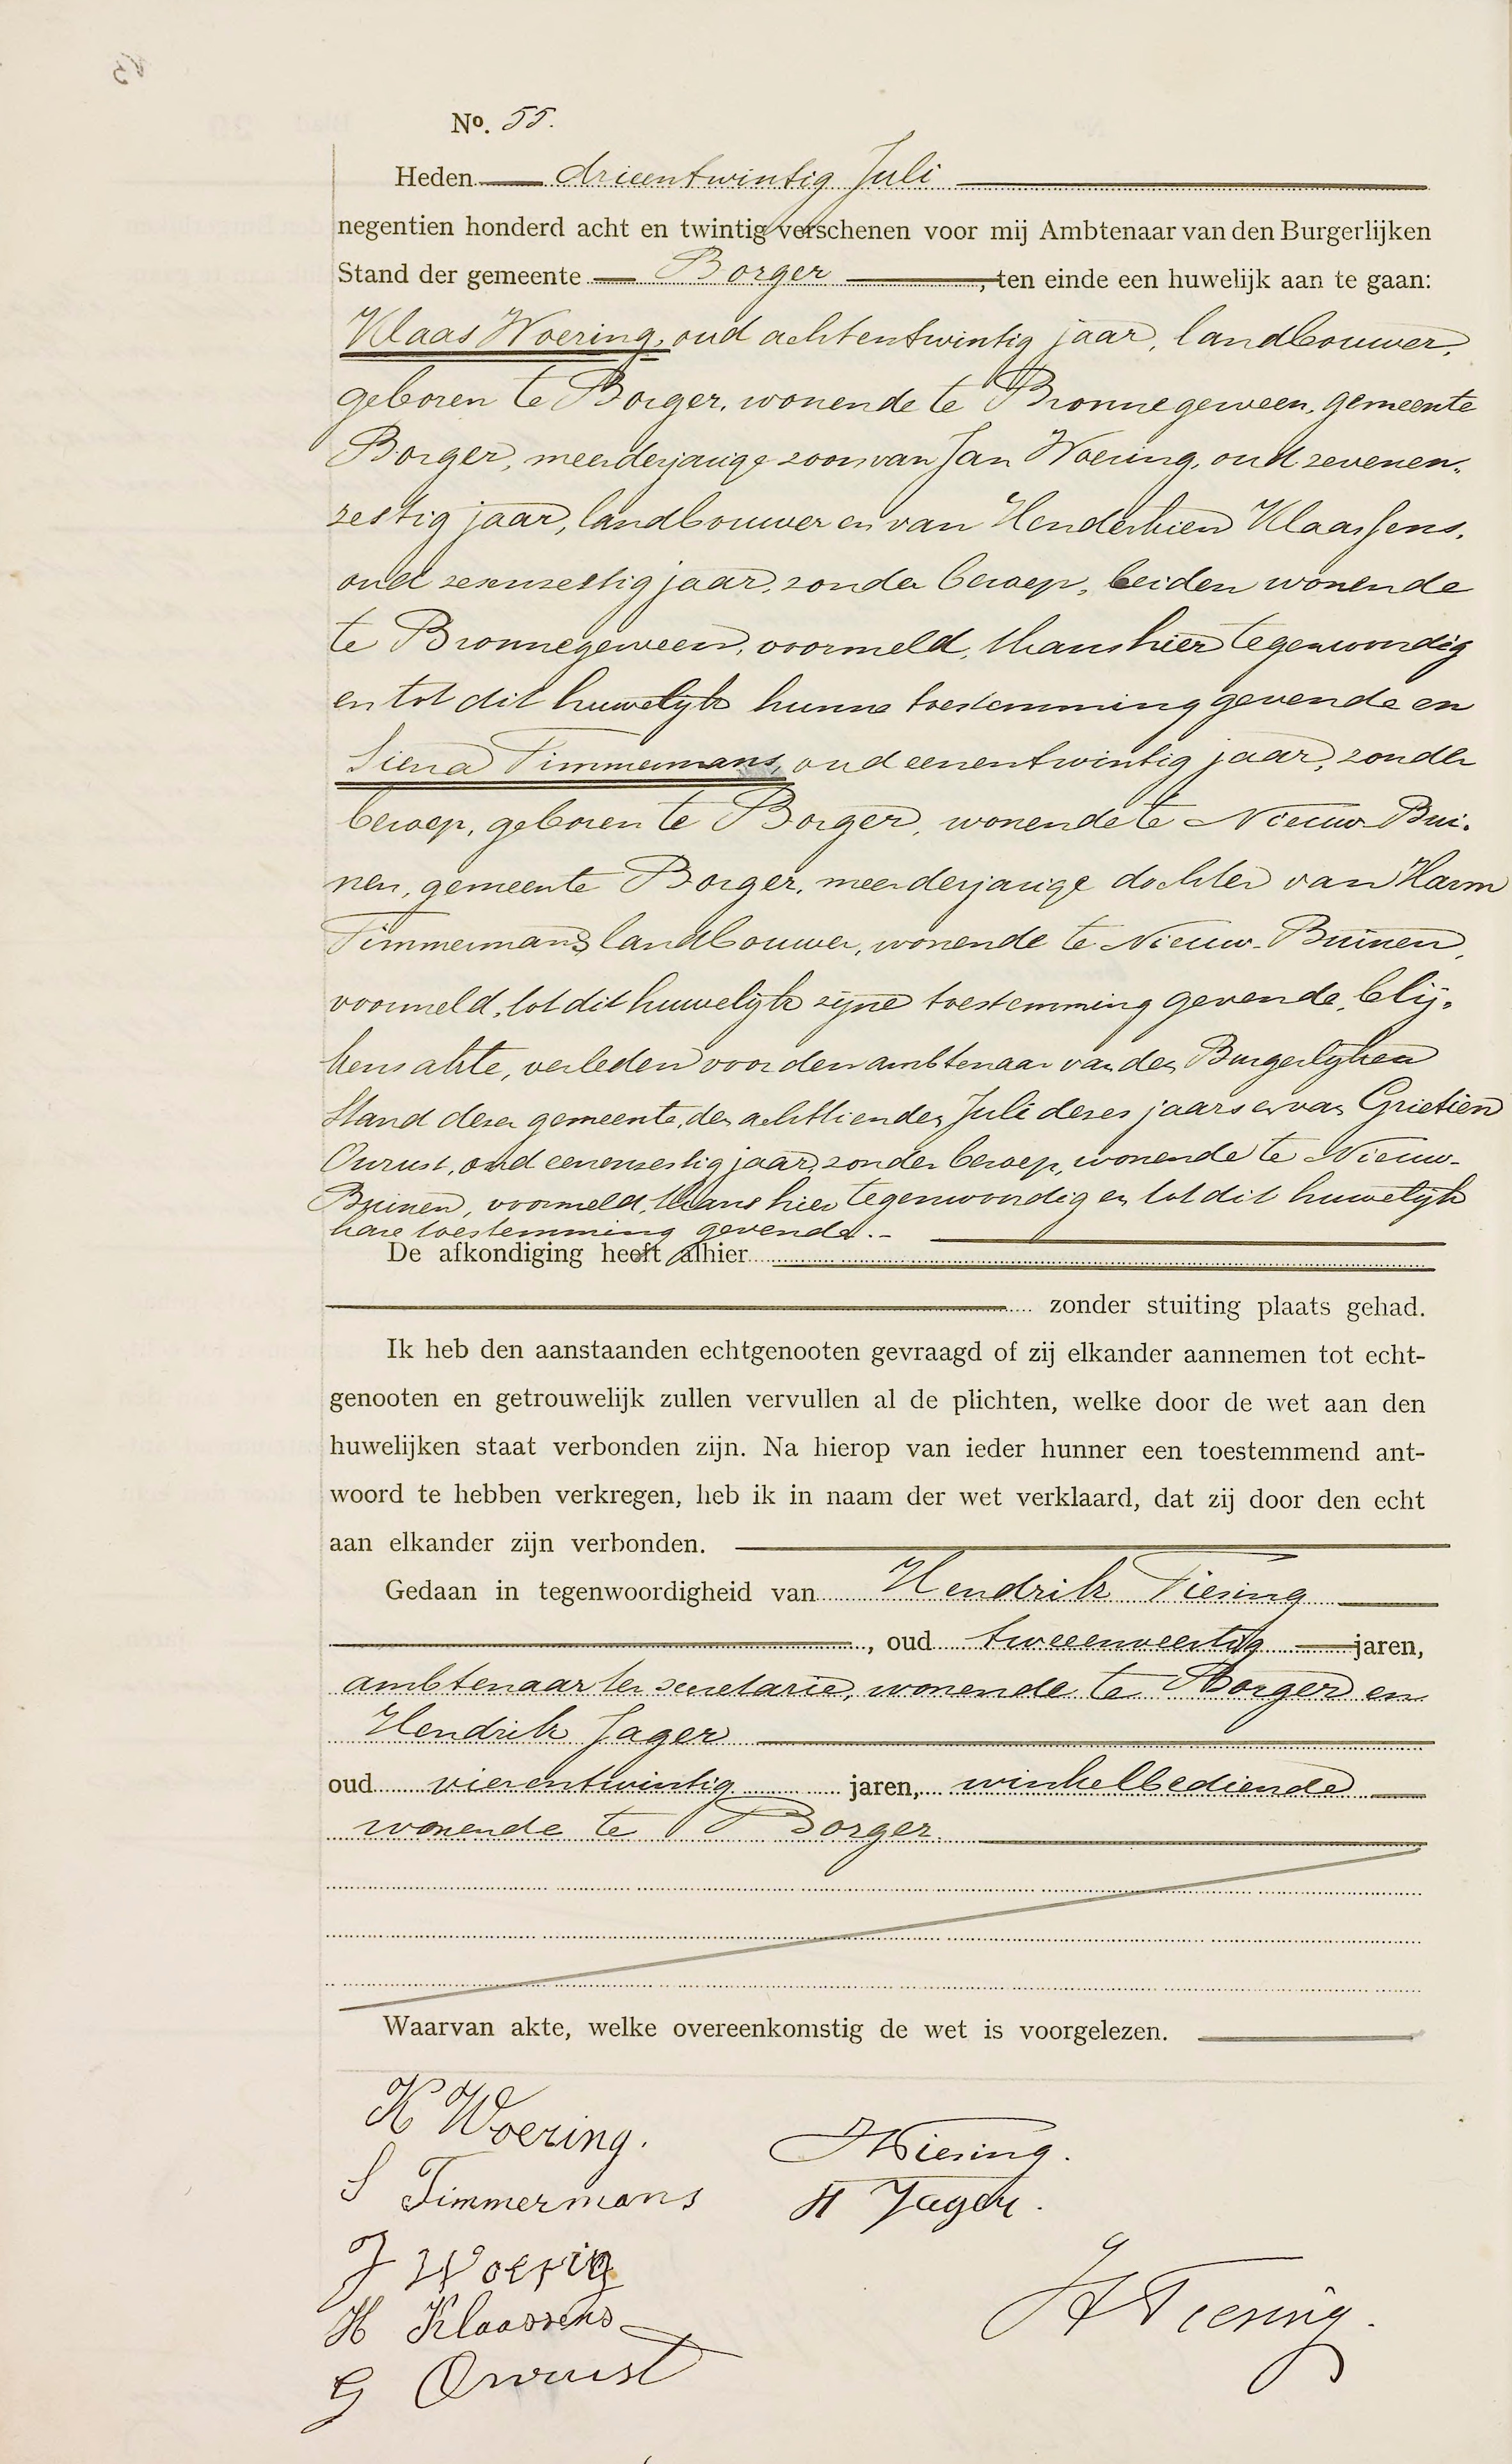 No. 55.
Heden drieentwintig Juli
negentien honderd acht en twintig verschenen voor mij Ambtenaar van den Burgerlijken
Stand der gemeente Borger, ten einde een huwelijk aan te gaan:
Klaas Woering, oud achtentwintig jaar, landbouwer,
geboren te Borger, wonende te Bronnegerveen, gemeente
Borger, meerderjarige zoon van Jan Woering, oud zevenen-
zestig jaar, landbouwer en van Henderkien Klaassens,
oud zesenzestig jaar, zonder beroep, beiden wonende
te Bronnegerveen, voormeld, thans hier tegenwoordig
en tot dit huwelijk hunne toestemming gevende en
Siena Timmermans, oud eenentwintig jaar, zonder
beroep, geboren te Borger, wonende te Nieuw-Bui-
nen, gemeente Borger, meerderjarige dochter van Harm
Timmermans landbouwer, wonende te Nieuw-Buinen,
voormeld, tot dit huwelijk zijne toestemming gevende, blij-
kens akte, verleden voor den ambtenaar van den Burgerlijken
Stand dezer gemeente, den achttienden Juli dezes jaars en van Grietien
Onrust, oud eenenzestig jaar, zonder beroep, wonende te Nieuw-
Buinen, voormeld, thans hier tegenwoordig en tot dit huwelijk
hare toestemming gevende.-
De afkondiging heeft alhier
zonder stuiting plaats gehad.
Ik heb den aanstaanden echtgenooten gevraagd of zij elkander aannemen tot echt-
genooten en getrouwelijk zullen vervullen al de plichten, welke door de wet aan den
huwelijken staat verbonden zijn. Na hierop van ieder hunner een toestemmend ant-
woord te hebben verkregen, heb ik in naam der wet verklaard, dat zij door den echt
aan elkander zijn verbonden.
Gedaan in tegenwoordigheid van Hendrik Tiesing
, oud tweeenveertig jaren,
ambtenaar ter secretarie, wonende te Borger en
Hendrik Jager
oud vierentwintig jaren, winkelbediende
wonende te Borger.
Waarvan akte, welke overeenkomstig de wet is voorgelezen.
K Woering.
HTiesing.
S Timmermans
H Jager.
J Woering
H Klaassens
HTiesing.
G Onrust